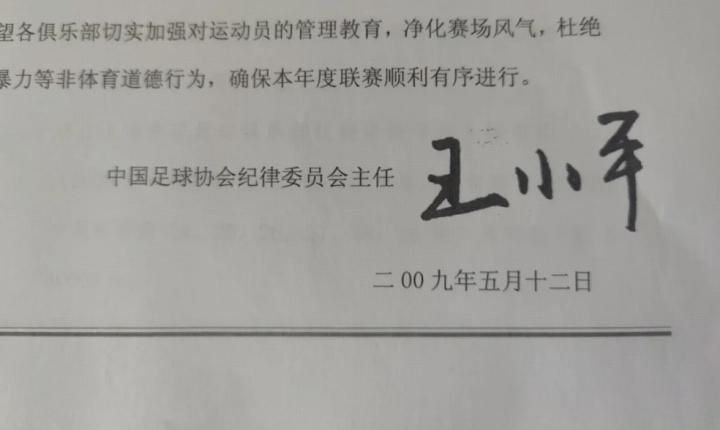 望各俱乐部切实加强对运动员的管理教育，净化赛场风气，杜绝
暴力等非体育道德行为，确保本年度联赛顺利有序进行。
中国足球协会纪律委员会主任 王小平
二00九年五月十二日